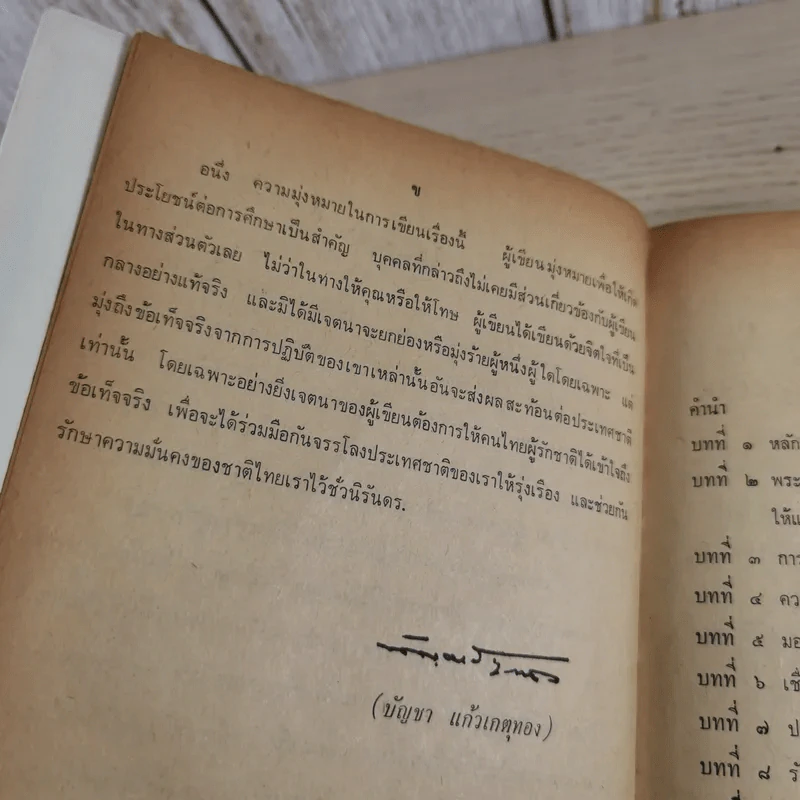 ข
อนึ่ง ความมุ่งหมายในการเขียนเรื่องนี้ ผู้เขียนมุ่งหมายเพื่อให้เกิด
ประโยชน์ต่อการศึกษาเป็นสำคัญ บุคคลที่กล่าวถึงไม่เคยมีส่วนเกี่ยวข้องกับผู้เขียน
ในทางส่วนตัวเลย ไม่ว่าในทางให้คุณหรือให้โทษ ผู้เขียนได้เขียนด้วยจิตใจที่เป็น
กลางอย่างแท้จริง และมิได้มีเจตนาจะยกย่องหรือมุ่งร้ายผู้หนึ่งผู้ใดโดยเฉพาะ แต่
มุ่งถึงข้อเท็จจริงจากการปฏิบัติของเขาเหล่านั้นอันจะส่งผลสะท้อนต่อประเทศชาติ
เท่านั้น โดยเฉพาะอย่างยิ่งเจตนาของผู้เขียนต้องการให้คนไทยผู้รักชาติได้เข้าใจถึง
ข้อเท็จจริง เพื่อจะได้ร่วมมือกันจรรโลงประเทศชาติของเราให้รุ่งเรือง และช่วยกัน
รักษาความมั่นคงของชาติไทยเราไว้ชั่วนิรันดร.
(บัญชา แก้วเกตุทอง)
คำนำ
บทที่ ๑ หลัก
บทที่ ๒ พระ
ให้แ
บทที่ ๓ การ
บทที่ ๔ คว
บทที่ ๕ มอ
บทที่ ๖ เชื่
บทที่ ๗ ป
บทที่ ๘ รั